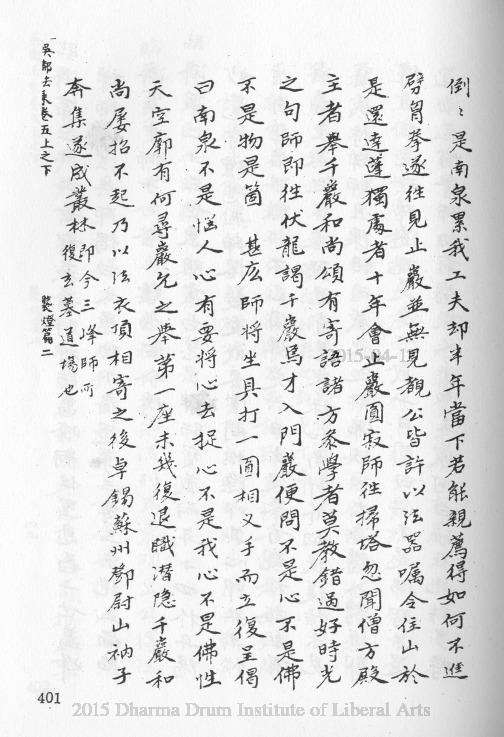 倒倒是南泉累我工夫却半年當下若能親薦得如何不進
劈胷拳遂往見止巖並無見覩公皆許以法器囑令住山於
是還達蓬獨處者十年會止巖圓寂師往掃塔忽聞僧方殿
主者舉千巖和尚頌有寄語諸方叅學者莫教錯過好時光
之句師即往伏龍謁千巖焉才入門巖便問不是心不是佛
不是物是箇甚広師將坐具打一圓相叉手而立復呈偈
曰南泉不是惱人心有要將心去捉心不是我心不是佛性
天空廓有何尋巖允之舉第一座未幾復退職潛隐千巖和
尚屡招不起乃以法衣頂相寄之後卓錫蘇州鄧尉山衲子
奔集遂成叢林即今三峰師所復玄墓道塲也
吳都法乘卷五上之下
熒燈篇二
401
2015-04-1
2015 Dharma Drum Institute of Liberal Arts